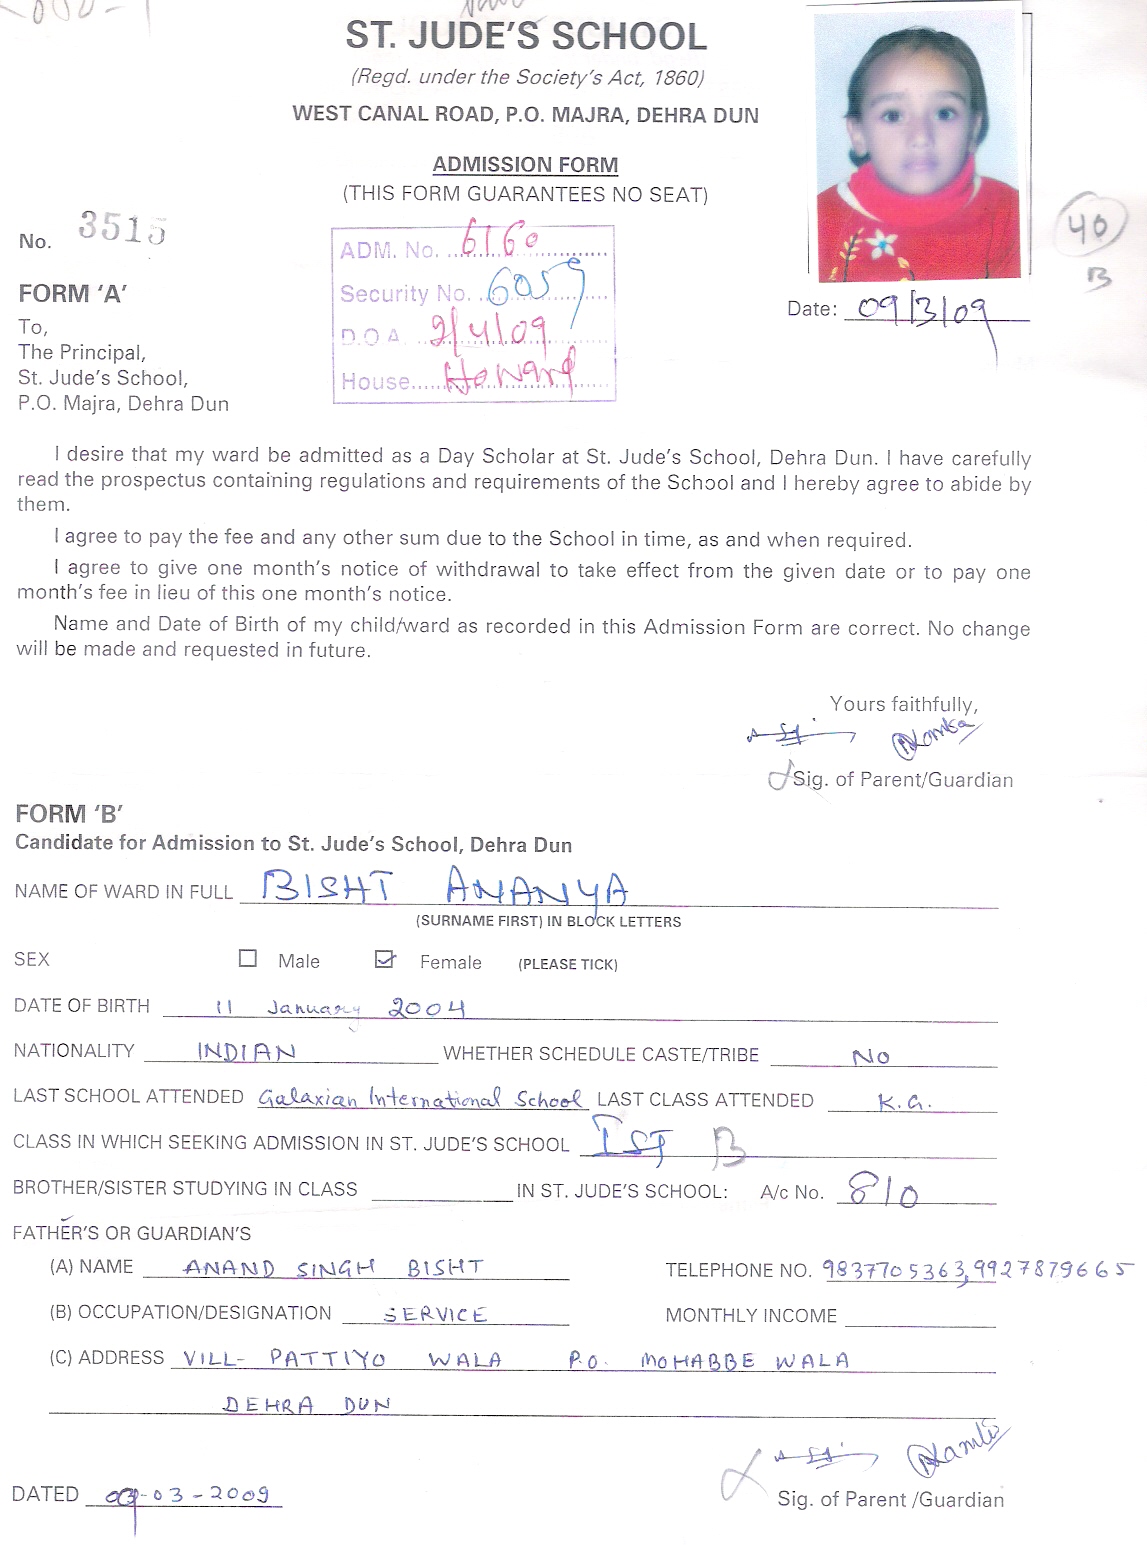 ST. JUDE'S SCHOOL
(Regd. under the Society's Act, 1860)
WEST CANAL ROAD, P.O. MAJRA, DEHRA DUN
ADMISSION FORM
(THIS FORM GUARANTEES NO SEAT)
No. 3515
ADM. No. 6160
Security No. 6059
D.O.A. 2/4/09
House Howard
40
B
Date: 09/3/09
FORM 'A'
To,
The Principal,
St. Jude's School,
P.O. Majra, Dehra Dun
I desire that my ward be admitted as a Day Scholar at St. Jude's School, Dehra Dun. I have carefully
read the prospectus containing regulations and requirements of the School and I hereby agree to abide by
them.
I agree to pay the fee and any other sum due to the School in time, as and when required.
I agree to give one month's notice of withdrawal to take effect from the given date or to pay one
month's fee in lieu of this one month's notice.
Name and Date of Birth of my child/ward as recorded in this Admission Form are correct. No change
will be made and requested in future.
Yours faithfully,
Sig. of Parent/Guardian
FORM 'B'
Candidate for Admission to St. Jude's School, Dehra Dun
NAME OF WARD IN FULL BISHT ANANYA
(SURNAME FIRST) IN BLOCK LETTERS
SEX Male Female (PLEASE TICK)
DATE OF BIRTH 11 January 2004
NATIONALITY INDIAN WHETHER SCHEDULE CASTE/TRIBE NO
LAST SCHOOL ATTENDED Galaxian International School LAST CLASS ATTENDED K.G.
CLASS IN WHICH SEEKING ADMISSION IN ST. JUDE'S SCHOOL IST B
BROTHER/SISTER STUDYING IN CLASS IN ST. JUDE'S SCHOOL: A/c No. 810
FATHER'S OR GUARDIAN'S
(A) NAME ANAND SINGH BISHT TELEPHONE NO. 9837705363, 9927879665
(B) OCCUPATION/DESIGNATION SERVICE MONTHLY INCOME
(C) ADDRESS VILL- PATTIYO WALA P.O. MOHABBE WALA
DEHRA DUN
DATED 09-03-2009
Sig. of Parent /Guardian